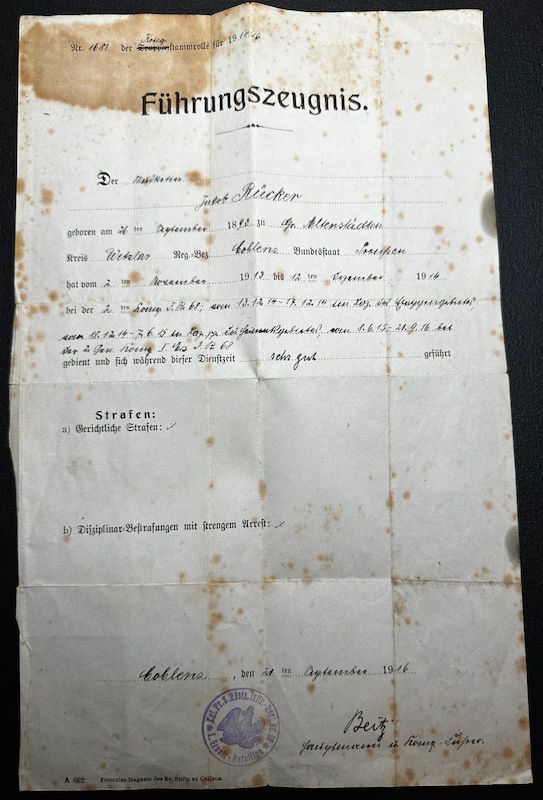 Nr. 1681 der Krieg Truppenstammrolle für 1914/16
Führungszeugnis.
Der Musketier
Jakob Rücker
geboren am 26 ten September 1893 zu Gr. Altenstädten
Kreis Wetzlar Reg.-Bez. Coblenz Bundesstaat Preußen
hat vom 2 November 1913 bis 12 ten Dezember 1914
bei der 2 ten Komp. I. R. 68, vom 13.12.14 - 17.12.14 im Laz. des Etappengebietes
vom 18.12.14 - 7.6.15 in Laz. des Heimatgebietes, vom 8.6.15 - 21.9.16 bei
der 2. Gen. Komp. I. Ers. I. R. 68
gedient und sich während dieser Dienstzeit sehr gut geführt
Strafen:
a) Gerichtliche Strafen:
b) Disziplinar-Bestrafungen mit strengem Arrest:
Coblenz, den 21 ten September 1916
Beitz
Hauptmann u. Komp.-Führer.
A 662. Formular-Magazin des Ev. Stifts zu Coblenz.